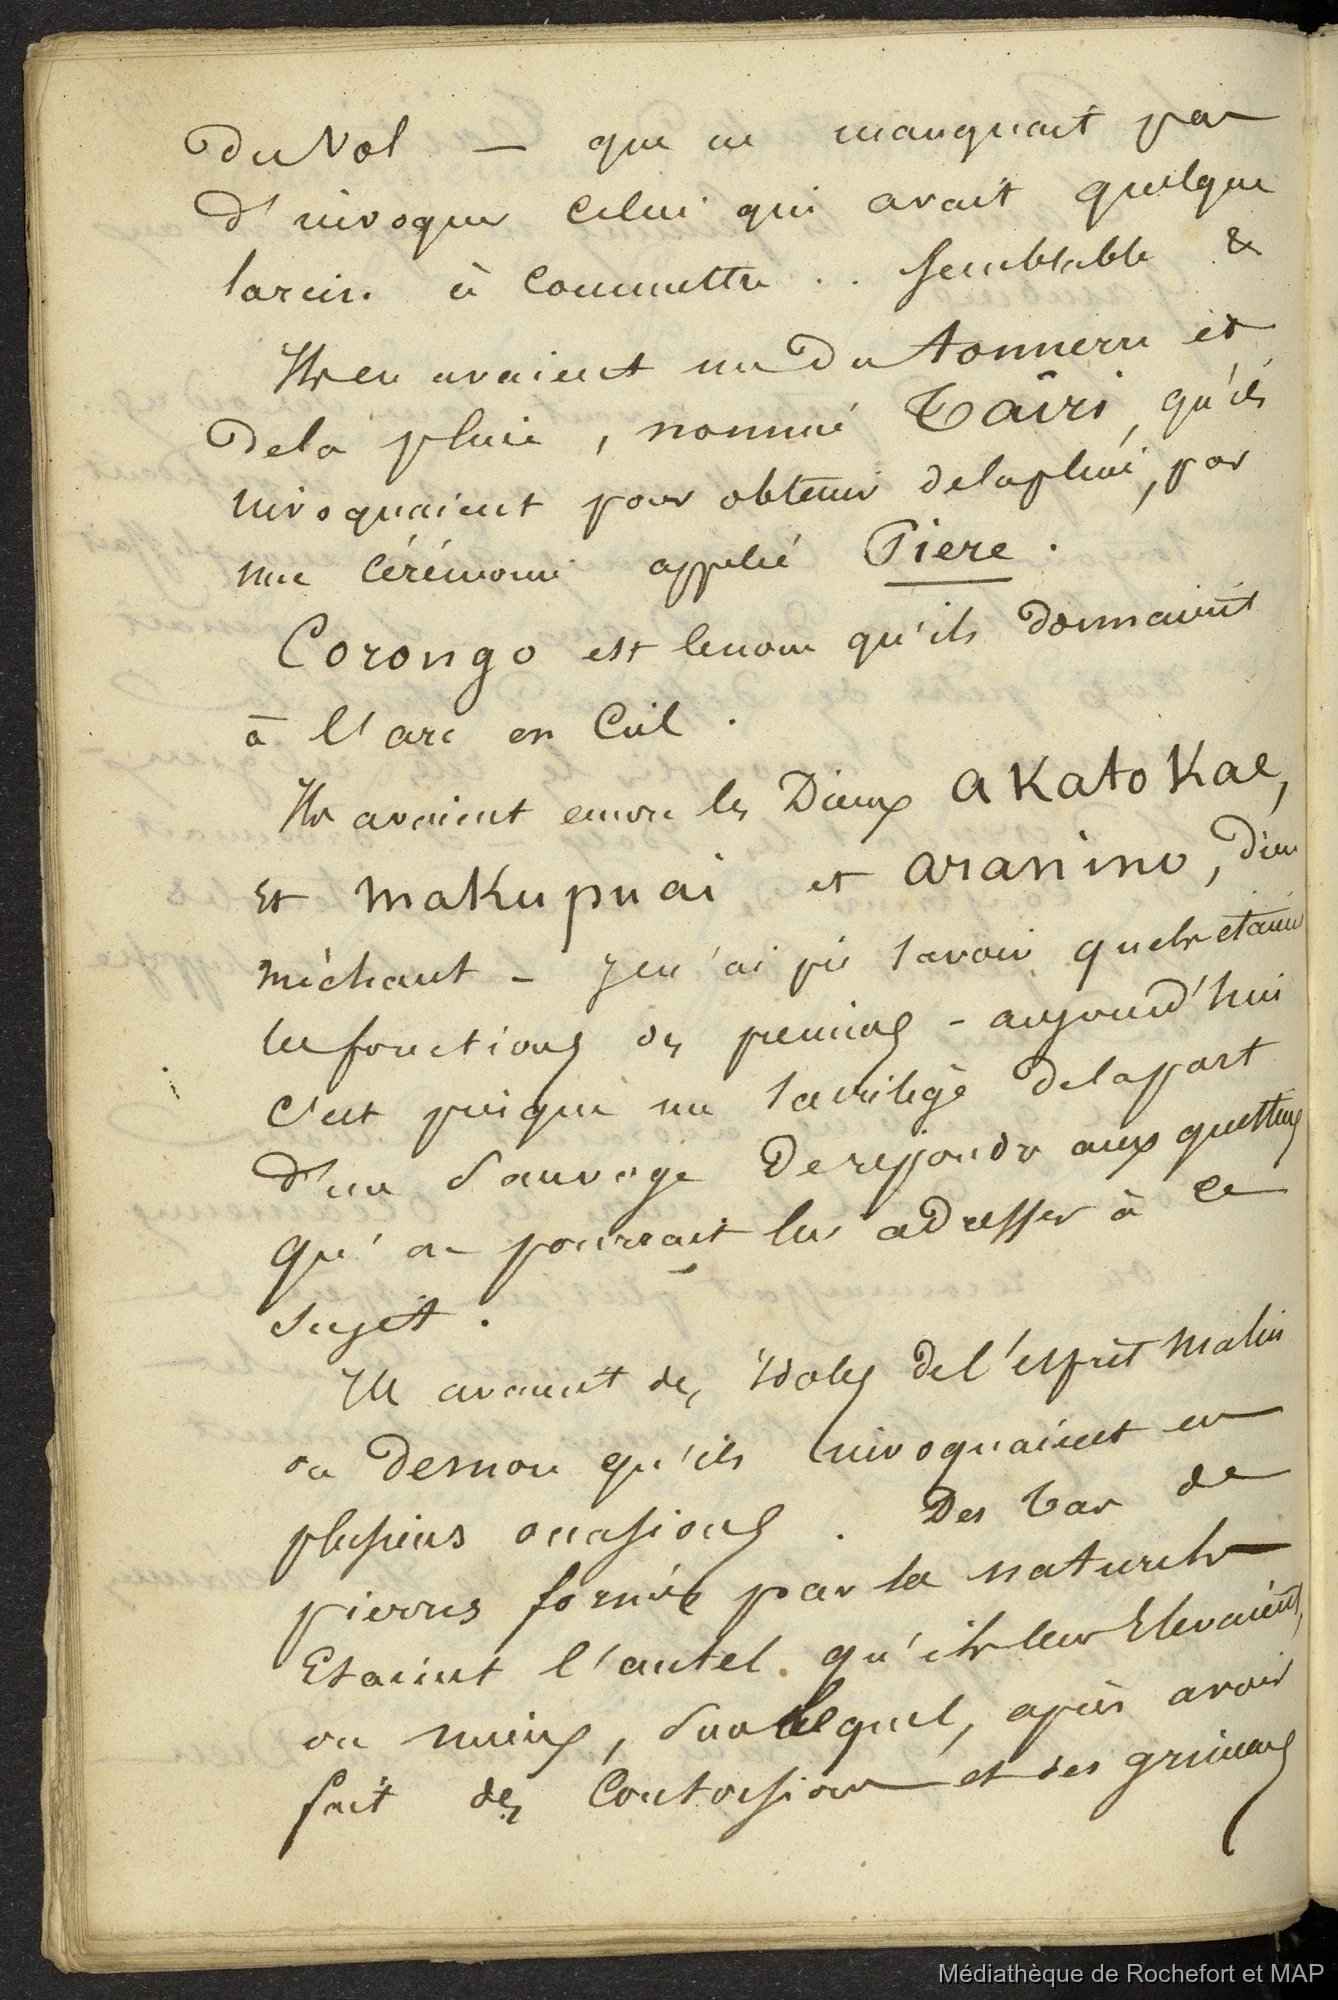 du Vol — que ne manquait pas
d'invoquer celui qui avait quelque
larcin à Commettre .. Semblable &
Ils en avaient un du tonnerre et
de la pluie, nommé Tâiri, qu'ils
invoquaient pour obtenir de la pluie, par
une Cérémonie appelée Piere.
Corongo est le nom qu'ils donnaient
à l'arc en Ciel.
Ils avaient encore les Dieux akatokae,
Et makupuai et aranino, dieu
méchant - je n'ai pu savoir quels étaient
les fonctions des premiers - aujourd'hui
c'est presque un sacrilège de la part
d'un Sauvage de repondre aux questions
qu'on pourrait lui adresser à ce
sujet.
Ils avaient des idoles de l'esprit malin
ou demon qu'ils invoquaient en
plusieurs occasions. Des tas de
pierres formés par la nature
Etaient l'autel qu'ils leur Elevaient,
ou mieux, Sur lequel, après avoir
fait des Contorsions et des grimaces
Médiathèque de Rochefort et MAP